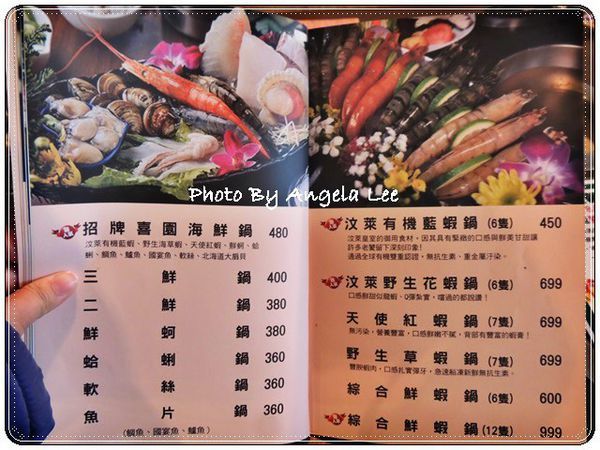 Photo By Angela Lee
招牌喜園海鮮鍋 480
汶萊有機藍蝦、野生海草蝦、天使紅蝦、鮮蚵、蛤
蜊、鯛魚、鱸魚、國宴魚、軟絲、北海道大扇貝
三鮮鍋 400
二鮮鍋 380
鮮蚵鍋 380
蛤蜊鍋 360
軟絲鍋 360
魚片鍋 360
(鯛魚、國宴魚、鱸魚)
汶萊有機藍蝦鍋 (6隻) 450
汶萊皇室的御用食材，因其具有緊緻的口感與鮮美甘甜讓
許多老饕留下深刻印象!
通過全球有機雙重認證，無抗生素、重金屬汙染。
汶萊野生花蝦鍋 (6隻) 699
口感鮮甜似龍蝦、Q彈紮實，嚐過的都說讚!
天使紅蝦鍋 (7隻) 699
無污染，營養豐富，口感鮮嫩不膩，背部有豐富的蝦膏!
野生草蝦鍋 (7隻) 699
豐腴蝦肉，口感扎實彈牙，急速船凍新鮮無抗生素。
綜合鮮蝦鍋 (6隻) 600
綜合鮮蝦鍋 (12隻) 999